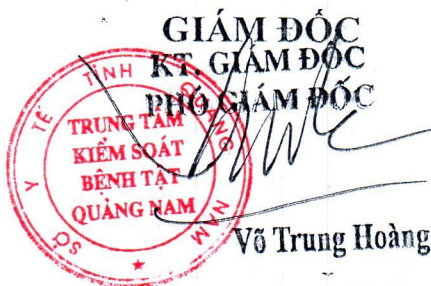 GIÁM ĐỐC
KT. GIÁM ĐỐC
PHÓ GIÁM ĐỐC
SỞ Y TẾ TỈNH QUẢNG NAM
TRUNG TÂM
KIỂM SOÁT
BỆNH TẬT
QUẢNG NAM
Võ Trung Hoàng